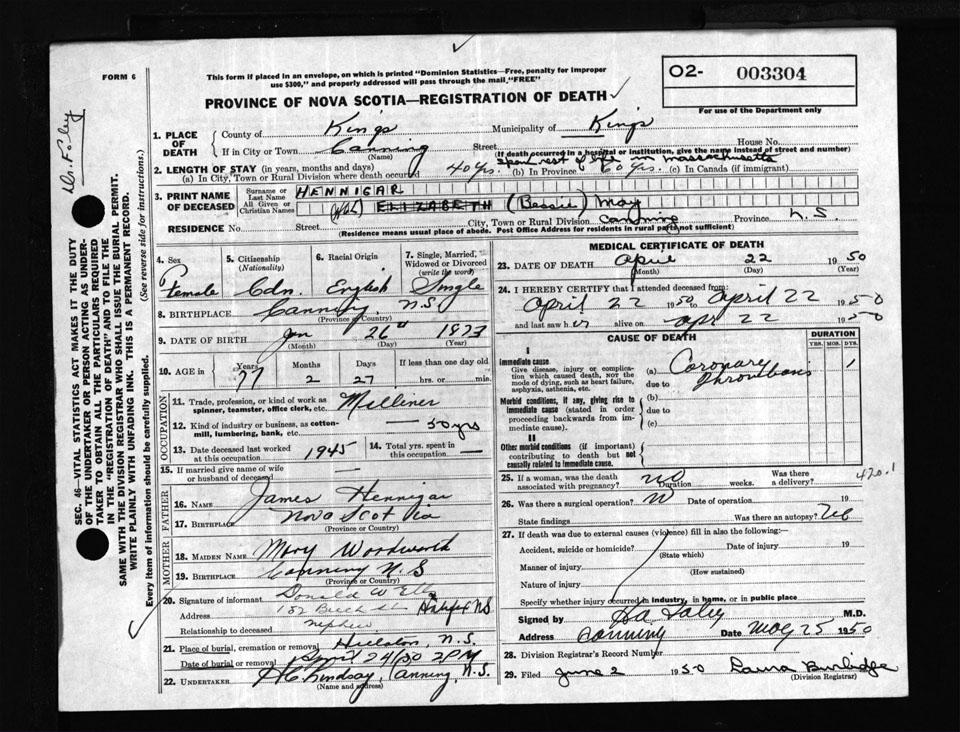 FORM 6
This form if placed in an envelope, on which is printed "Dominion Statistics—Free, penalty for improper
use $300," and properly addressed will pass through the mail "FREE"
PROVINCE OF NOVA SCOTIA—REGISTRATION OF DEATH
O2- 003304
For use of the Department only
Dr. Foley
SEC. 46—VITAL STATISTICS ACT MAKES IT THE DUTY
OF THE UNDERTAKER OR PERSON ACTING AS UNDER-
TAKER TO OBTAIN ALL THE PARTICULARS REQUIRED
IN THE "REGISTRATION OF DEATH" AND TO FILE THE
SAME WITH THE DIVISION REGISTRAR WHO SHALL ISSUE THE BURIAL PERMIT.
WRITE PLAINLY WITH UNFADING INK. THIS IS A PERMANENT RECORD.
Every item of information should be carefully supplied. (See reverse side for instructions.)
1. PLACE OF DEATH County of Kings Municipality of Kings
If in City or Town Canning Street House No.
(Name) (If death occurred in a hospital or institution, give the name instead of street and number)
Spent rest of life in Massachusetts
2. LENGTH OF STAY (in years, months and days)
(a) In City, Town or Rural Division where death occurred 40 yrs. (b) In Province 60 yrs. (c) In Canada (if immigrant)
3. PRINT NAME OF DECEASED Surname or Last Name HENNIGAR
All Given or Christian Names ELIZABETH (Bessie) May
RESIDENCE No. Street City, Town or Rural Division Canning Province N.S.
(Residence means usual place of abode. Post Office Address for residents in rural parts not sufficient)
4. Sex Female
5. Citizenship (Nationality) Cdn.
6. Racial Origin English
7. Single, Married, Widowed or Divorced (write the word) Single
8. BIRTHPLACE Canning, N.S.
(Province or Country)
9. DATE OF BIRTH Jan 26th 1873
(Month) (Day) (Year)
10. AGE in Years 77 Months 2 Days 27 If less than one day old hrs. or min.
OCCUPATION
11. Trade, profession, or kind of work as spinner, teamster, office clerk, etc. Milliner
12. Kind of industry or business, as cotton-mill, lumbering, bank, etc. — 50 yrs
13. Date deceased last worked at this occupation 1945 14. Total yrs. spent in this occupation —
15. If married give name of wife or husband of deceased —
FATHER
16. Name James Hennigar
17. Birthplace Nova Scotia
(Province or Country)
MOTHER
18. MAIDEN NAME Mary Woodworth
19. BIRTHPLACE Canning N.S
(Province or Country)
20. Signature of informant Donald W
Address Halifax NS
Relationship to deceased nephew
21. Place of burial, cremation or removal N.S.
Date of burial or removal April 24/50 2 PM
22. UNDERTAKER H C Lindsay, Canning, N.S.
(Name and address)
MEDICAL CERTIFICATE OF DEATH
23. DATE OF DEATH April 22 1950
(Month) (Day) (Year)
24. I HEREBY CERTIFY that I attended deceased from:
April 22 1950 to April 22 1950
and last saw her alive on Apr 22 1950
CAUSE OF DEATH
DURATION
YRS. MOS. DYS.
I
Immediate cause
Give disease, injury or complication which caused death, not the mode of dying, such as heart failure, asphyxia, asthenia, etc.
(a) Coronary Thrombosis 1
due to
Morbid conditions, if any, giving rise to immediate cause (stated in order proceeding backwards from immediate cause).
(b)
due to
(c)
II
Other morbid conditions (if important) contributing to death but not causally related to immediate cause.
420.1
25. If a woman, was the death associated with pregnancy? No Duration weeks. Was there a delivery?
26. Was there a surgical operation? Date of operation 19
State findings Was there an autopsy? No
27. If death was due to external causes (violence) fill in also the following:—
Accident, suicide or homicide? Date of injury 19
(State which)
Manner of injury
(How sustained)
Nature of injury
Specify whether injury occurred in industry, in home, or in public place
Signed by Foley M.D.
Address Canning Date May 25 1950
28. Division Registrar's Record Number
29. Filed June 2 1950 Laura Burbidge
(Division Registrar)